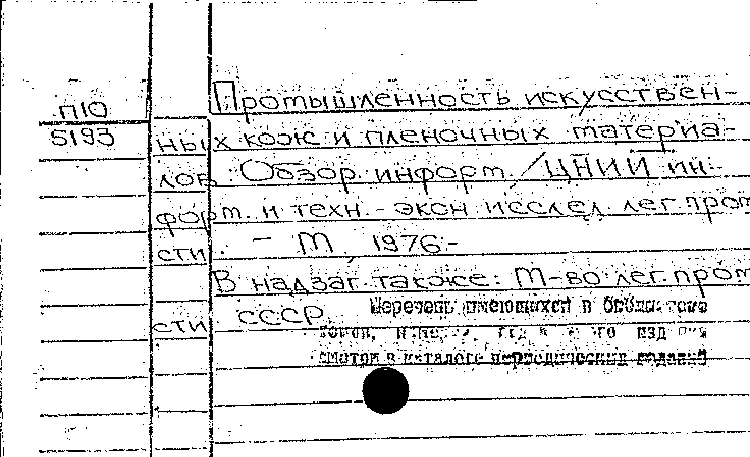 П10
5193
Промышленность искусствен-
ных кож и пленочных материа-
лов. Обзор. информ. / ЦНИИ ин-
форм. и техн.-экон. исслед. лег. пром
сти. - М., 1976-
В надзаг. также: М-во лег. пром
сти СССР
Перечень имеющихся в библиотеке
томов,
смотри в каталоге периодических изданий